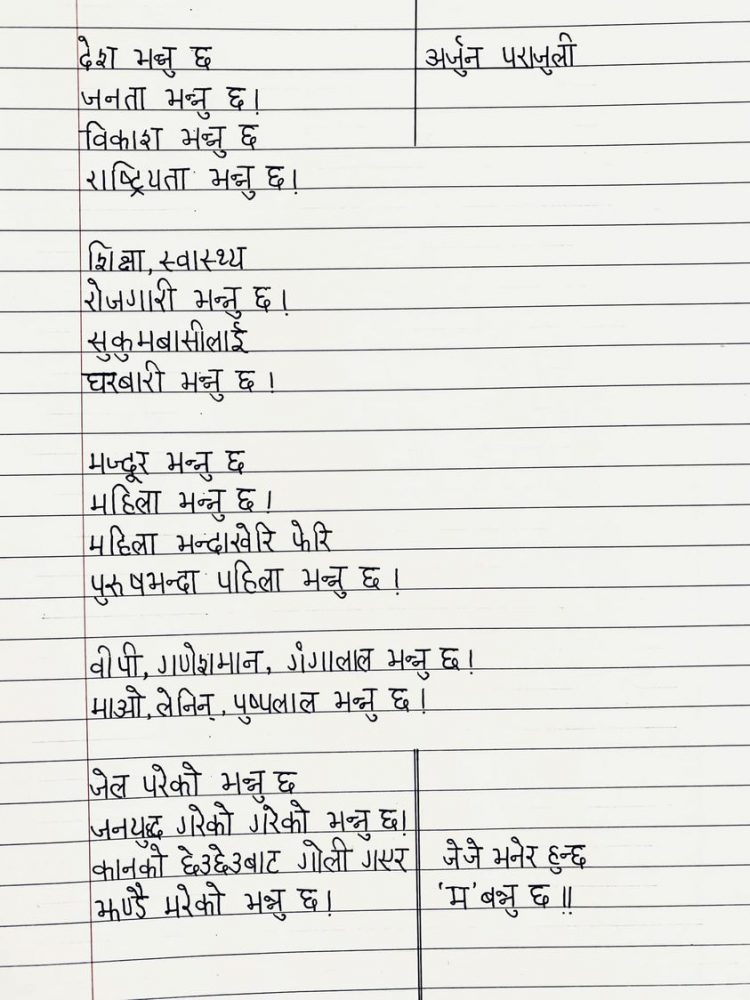 देश भन्नु छ
जनता भन्नु छ।
विकाश भन्नु छ
राष्ट्रियता भन्नु छ।
अर्जुन पराजुली
शिक्षा, स्वास्थ्य
रोजगारी भन्नु छ।
सुकुमबासीलाई
घरबारी भन्नु छ।
मज्दूर भन्नु छ
महिला भन्नु छ।
महिला भन्दाखेरि फेरि
पुरुषभन्दा पहिला भन्नु छ।
वीपी, गणेशमान, गंगालाल भन्नु छ।
माओ, लेनिन्, पुष्पलाल भन्नु छ।
जेल परेको भन्नु छ
जनयुद्ध गरेको गरेको भन्नु छ।
कानको छेउछेउबाट गोली गएर
झण्डै मरेको भन्नु छ।
जेजे भनेर हुन्छ
'म' बन्नु छ॥